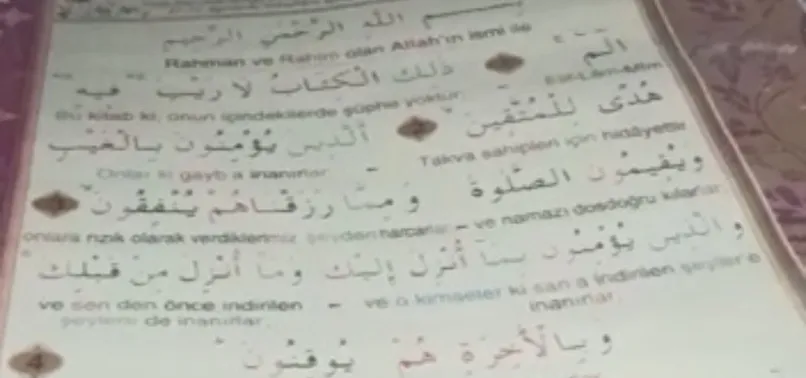 بِسْمِ اللَّهِ الرَّحْمَٰنِ الرَّحِيمِ
Rahman ve Rahim olan Allah'ın ismi ile
الٓمٓ ﴿1﴾ ذَٰلِكَ الْكِتَابُ لَا رَيْبَ ۛ فِيهِ ۛ
Elif-Lâm-Mîm Bu kitab ki, onun içindekilerde şüphe yoktur.
هُدًى لِلْمُتَّقِينَ ﴿2﴾ الَّذِينَ يُؤْمِنُونَ بِالْغَيْبِ
Takva sahipleri için hidâyettir Onlar ki gayb a inanırlar –
وَيُقِيمُونَ الصَّلٰوةَ وَمِمَّا رَزَقْنَاهُمْ يُنْفِقُونَ ﴿3﴾
– ve namazı dosdoğru kılarlar onlara rızık olarak verdiklerimiz şeyden harcarlar
وَالَّذِينَ يُؤْمِنُونَ بِمَا أُنْزِلَ إِلَيْكَ وَمَا أُنْزِلَ مِنْ قَبْلِكَ
– ve o kimseler ki san a indirilen şeyler e ve sen den önce indirilen
inanırlar şeylere de inanırlar.
وَبِالْآخِرَةِ هُمْ يُوقِنُونَ ﴿4﴾